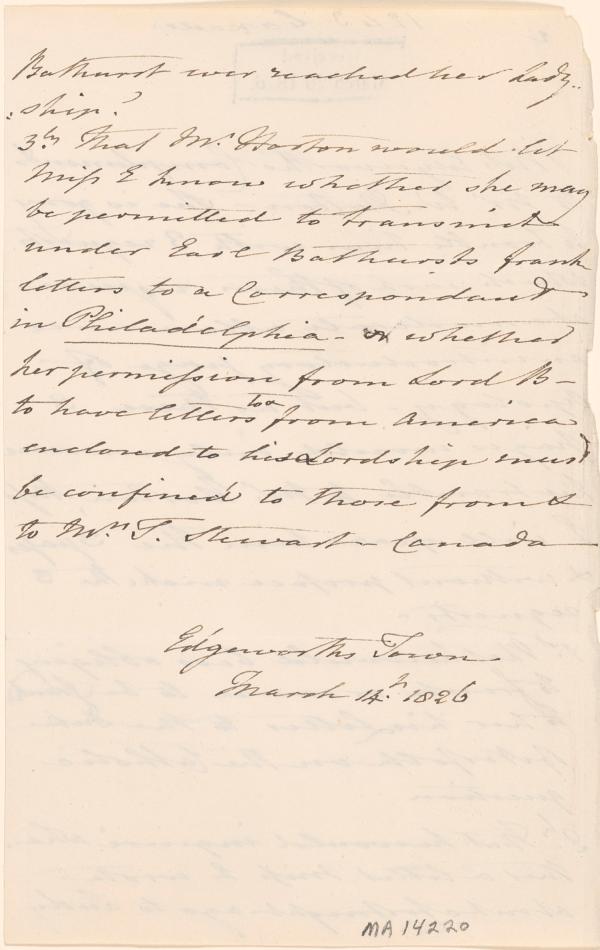 Bathurst ever reached her Lady-
-ship?
3.ly That Mr. Horton would let
Miss E know whether she may
be permitted to transmit
under Earl Bathursts frank
letters to a Correspondant
in Philadelphia - or whether
her permission from Lord B-
to have letters to & from America
enclosed to his Lordship must
be confined to those from &
to Mrs. T. Stewart - Canada
Edgeworths Town
March 14.th 1826
MA 14220